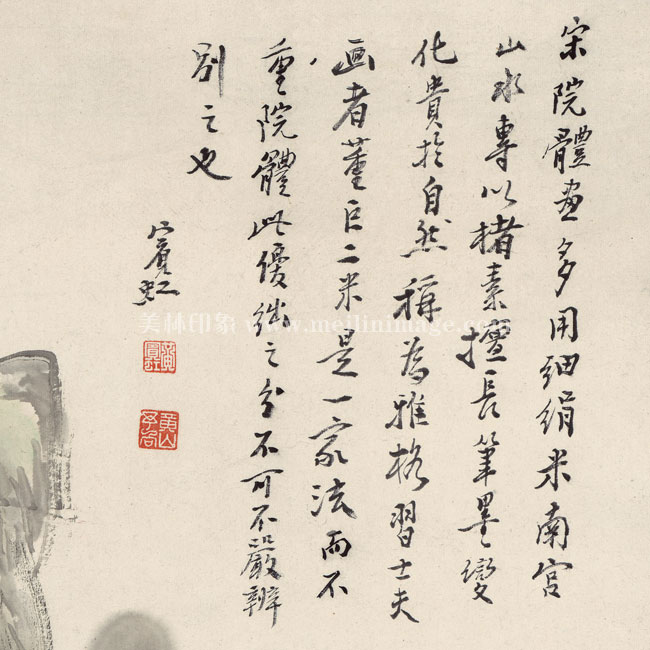 宋院體畫多用細絹米南宮
山水專以楮素擅長筆墨變
化貴於自然稱為雅格習士夫
画者董巨二米是一家法而不
重院體此優絀之分不可不嚴辨
別之也
賓虹
黃賓虹
黃山予向
美林印象 www.meilinimage.com